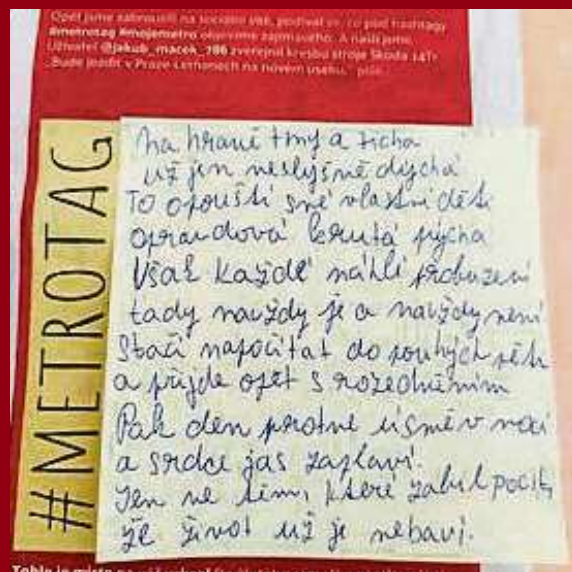 Opět jsme zabrousili na sociální sítě, podívat se, co pod hashtagy
#metrotag #mojemetro objevíme zajímavého. A našli jsme.
Uživatel @jakub_macek_786 zveřejnil kresbu stroje Škoda 14Tr
„Bude jezdit v Praze Letňanech na novém úseku," píše
#METROTAG
Na hraně tmy a ticha
už jen neslyšně dýchá
To opouští své vlastní děti
opravdová krutá pýcha
Však každé náhlé probuzení
tady navždy je a navždy není
Stačí napočítat do pouhých pěti
a přijde opět s rozedněním
Pak den protne úsměv noci
a srdce jas zaplaví.
Jen ne těm, které zabil pocit,
že život už je nebaví.